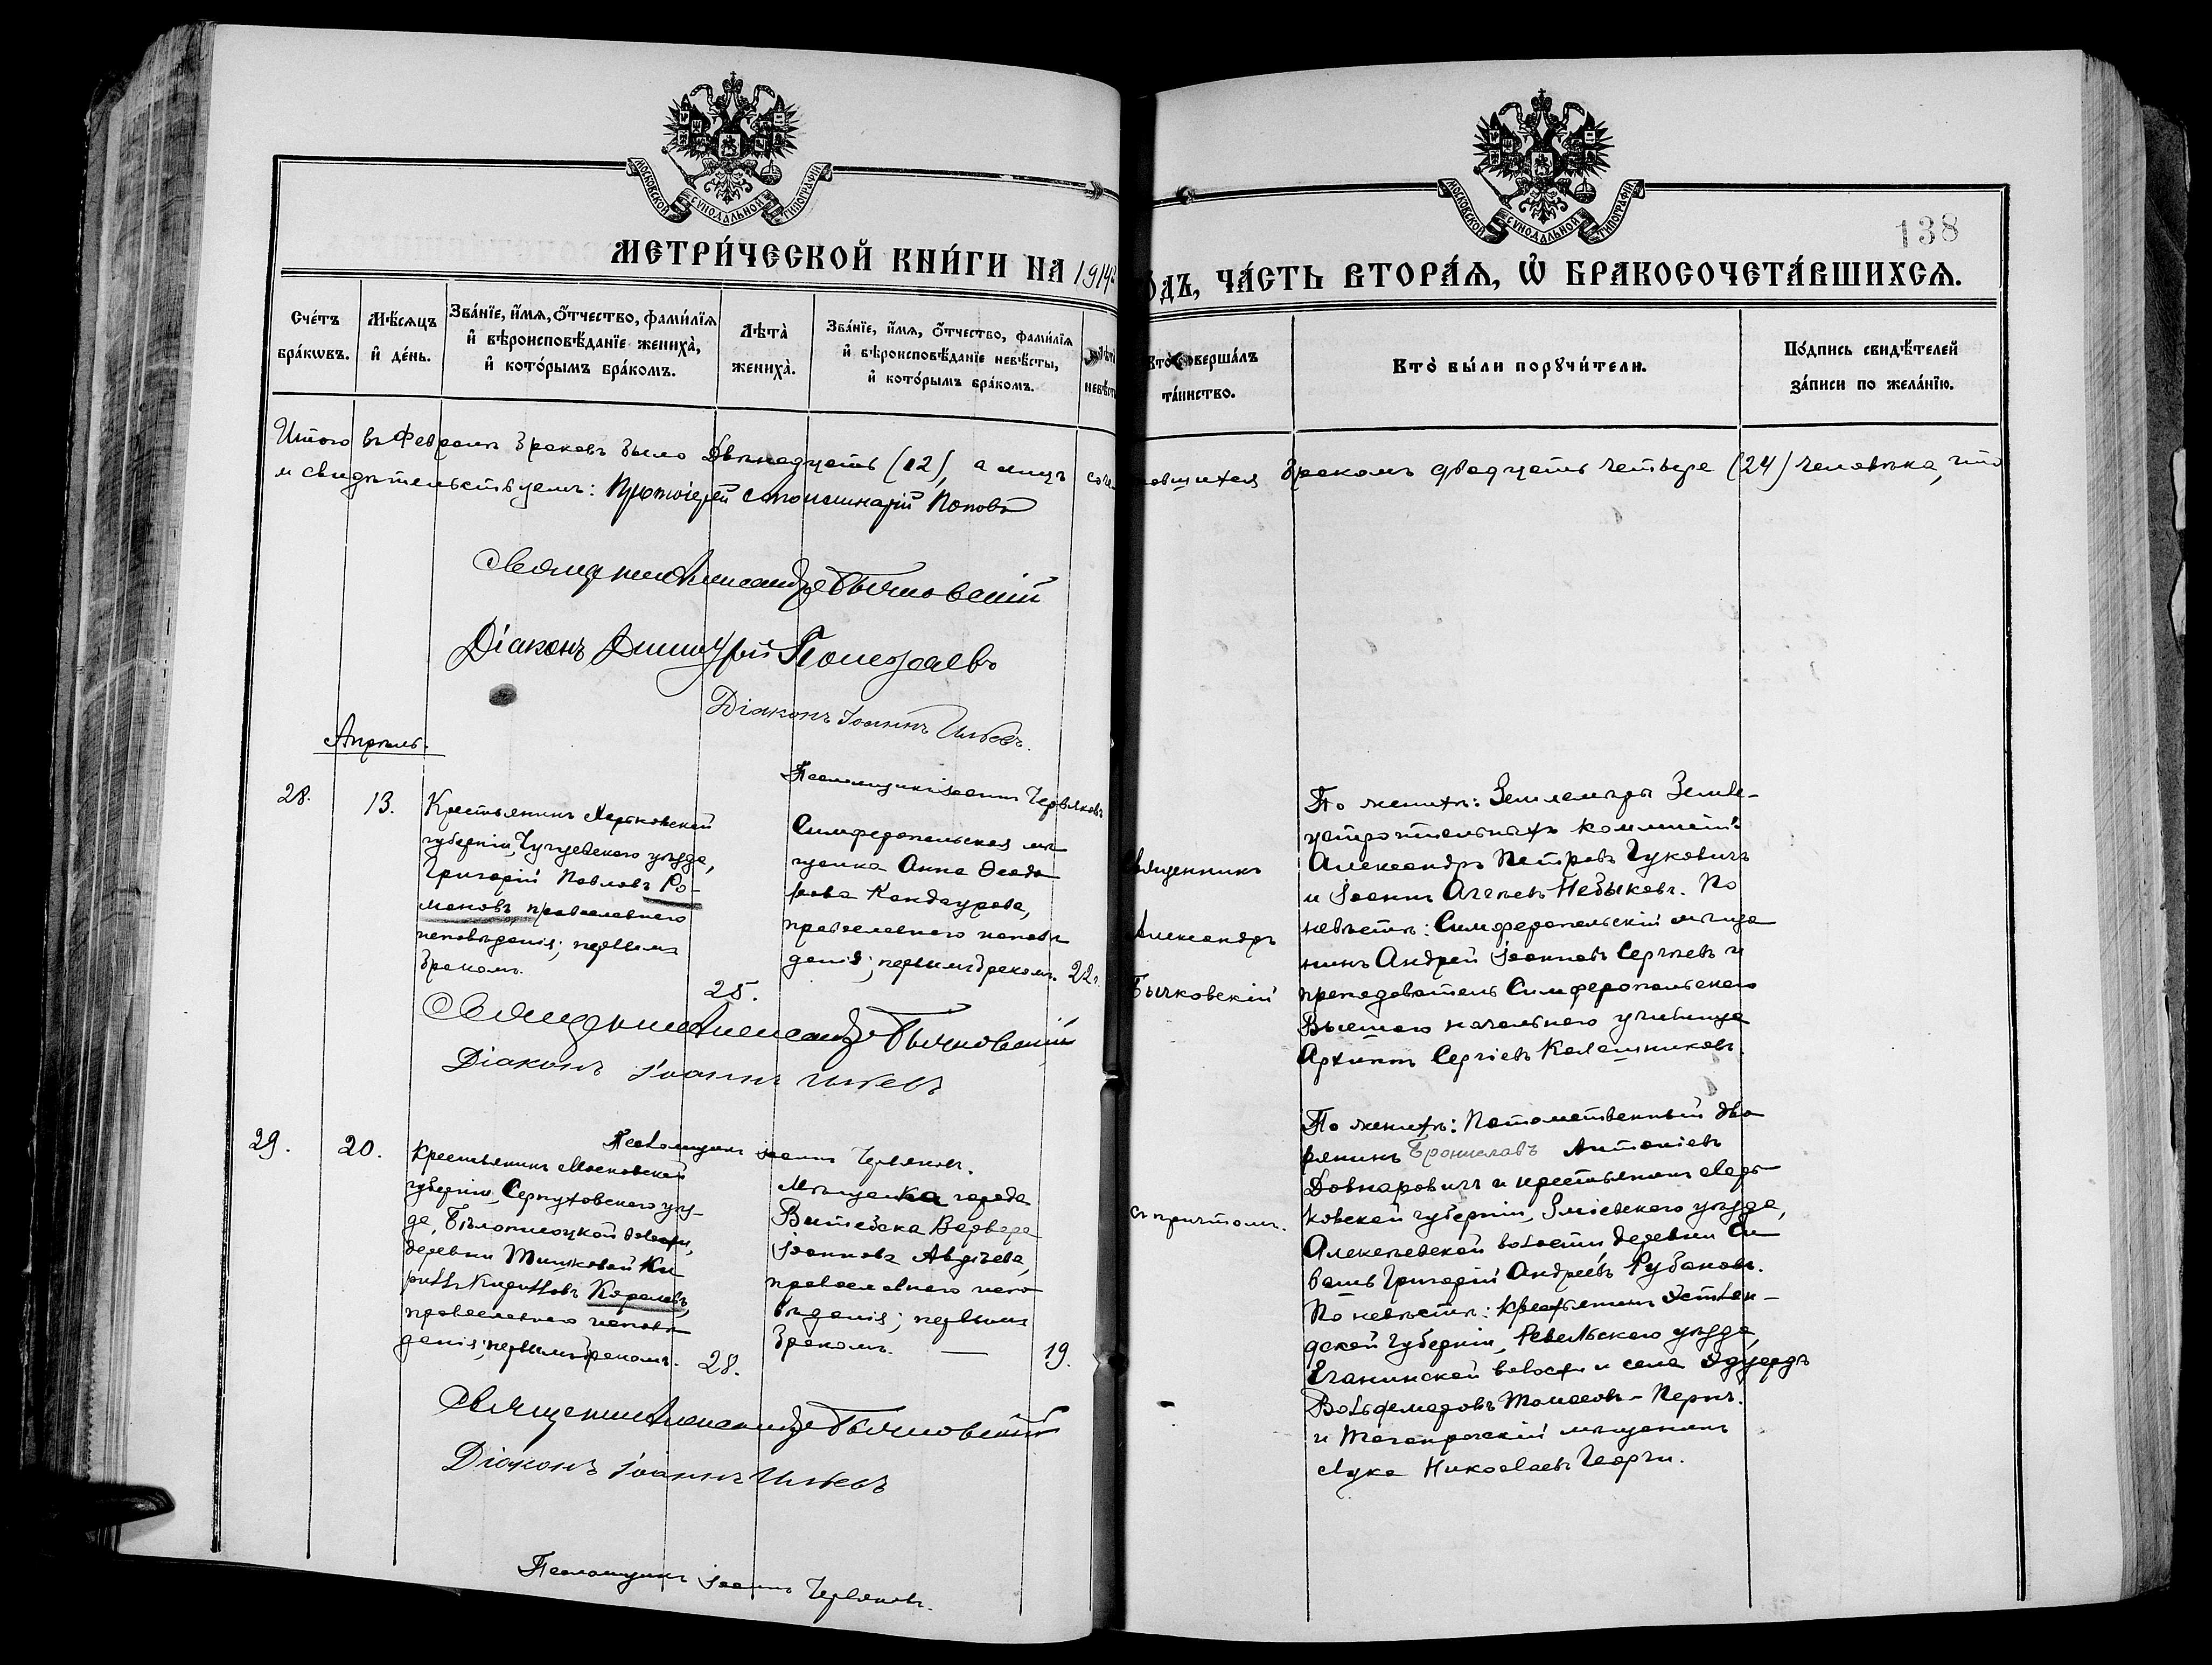 МОСКОВСКОЙ СѴНОДАЛЬНОЙ ТИПОГРАФІИ
МОСКОВСКОЙ СѴНОДАЛЬНОЙ ТИПОГРАФІИ
138
МЕТРИ́ЧЕСКОЙ КНИ́ГИ НА 1914
ОДЪ, ЧА́СТЬ ВТОРА́Я, Ѡ БРАКОСОЧЕТА́ВШИХСЯ.
Сче́тъ бра́кѡвъ.
Мѣ́сяцъ и де́нь.
Зва́нїе, и́мя, о́тчество, фами́лїя и вѣроисповѣ́данїе жениха̀, и кото́рымъ бра́комъ.
Лѣта̀ жениха̀.
Зва́нїе, и́мя, о́тчество, фами́лїя и вѣроисповѣ́данїе невѣ́сты, и кото́рымъ бра́комъ.
невѣ́сты
Кто̀ соверша́лъ та́инство.
Кто̀ бы́ли порꙋчи́тели.
По́дпись свидѣ́телей за́писи по жела́нїю.
Итого въ Февралѣ браковъ было двѣнадцать (12), а лицъ соче-
тавшихся бракомъ двадцать четыре (24) человѣка, что
и свидѣтельствуемъ: Протоіерей Поповъ
Священникъ Александръ Бычковскій
Діаконъ Димитрій
Діаконъ Іоаннъ
Псаломщикъ Іоаннъ Червяковъ
Апрѣль.
28.
13.
Крестьянинъ Харьковской
губерніи, Чугуевскаго уѣзда,
Григорій Павловъ Ро-
мановъ, православнаго
исповѣданія; первымъ
бракомъ.
25.
Симферопольская мѣ-
щанка Анна Ѳеодо-
рова Кандаурова,
православнаго исповѣ-
данія; первымъ бракомъ.
22.
Священникъ
Александръ
Бычковскій
По женихѣ: Землемѣры Земле-
устроительныхъ коммисій:
Александръ Петровъ Чуковичъ
и Іоаннъ Небыковъ. По
невѣстѣ: Симферопольскій мѣща-
нинъ Андрей Іоанновъ Сергѣевъ и
преподаватель Симферопольскаго
Высшаго начальнаго училища
Архиппъ Сергіевъ Калашниковъ.
Священникъ Александръ Бычковскій
Діаконъ Іоаннъ
Псаломщикъ Іоаннъ Червяковъ.
29.
20.
Крестьянинъ Московской
губерніи, Серпуховскаго уѣз-
да, волости,
деревни Тишковой Ки-
риллъ Кирилловъ Королевъ,
православнаго исповѣ-
данія; первымъ бракомъ.
28.
Мѣщанка города
Витебска Варвара
Іоаннова Авдѣева,
православнаго испо-
вѣданія; первымъ
бракомъ. —
19.
съ причтомъ.
По женихѣ: Потомственный дво-
рянинъ Брониславъ Антоніевъ
Довнаровичъ и крестьянинъ Харь-
ковской губерніи, Зміевскаго уѣзда,
Алексѣевской волости деревни Си-
вашъ Григорій Андреевъ Рубановъ.
По невѣстѣ: крестьянинъ Эстлян-
дской губерніи, Ревельскаго уѣзда,
волости и села Эдуардъ
Вольдемаровъ
и Таганрогскій мѣщанинъ
Лука Николаевъ Георги.
Священникъ Александръ Бычковскій
Діаконъ Іоаннъ
Псаломщикъ Іоаннъ Червяковъ.